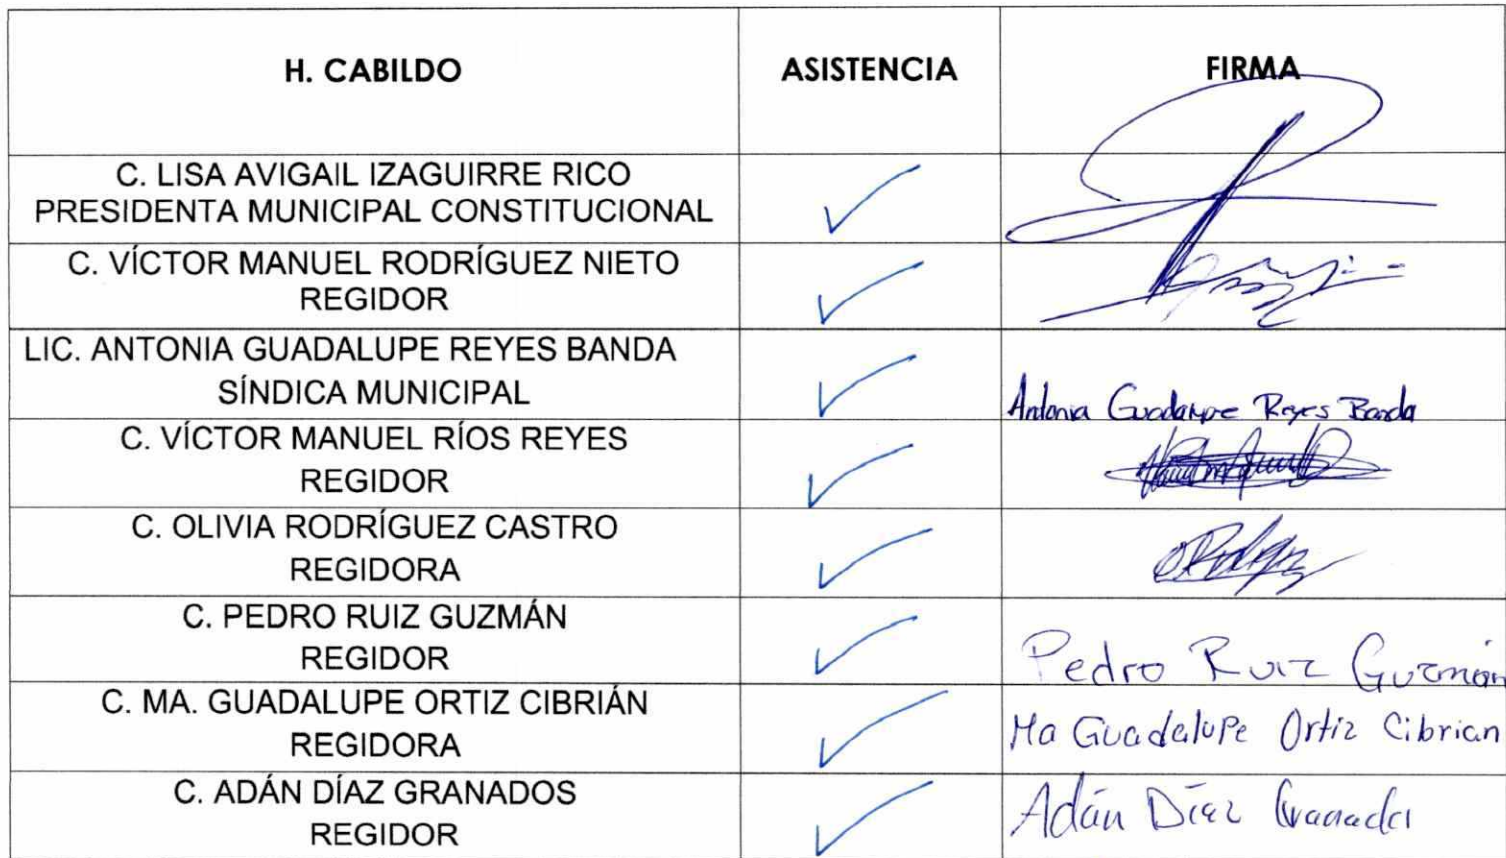 H. CABILDO ASISTENCIA FIRMA
C. LISA AVIGAIL IZAGUIRRE RICO
PRESIDENTA MUNICIPAL CONSTITUCIONAL
C. VÍCTOR MANUEL RODRÍGUEZ NIETO
REGIDOR
LIC. ANTONIA GUADALUPE REYES BANDA
SÍNDICA MUNICIPAL
Antonia Guadalupe Reyes Banda
C. VÍCTOR MANUEL RÍOS REYES
REGIDOR
C. OLIVIA RODRÍGUEZ CASTRO
REGIDORA
C. PEDRO RUIZ GUZMÁN
REGIDOR
Pedro Ruiz Guzmán
C. MA. GUADALUPE ORTIZ CIBRIÁN
REGIDORA
Ma Guadalupe Ortiz Cibrian
C. ADÁN DÍAZ GRANADOS
REGIDOR
Adán Díaz